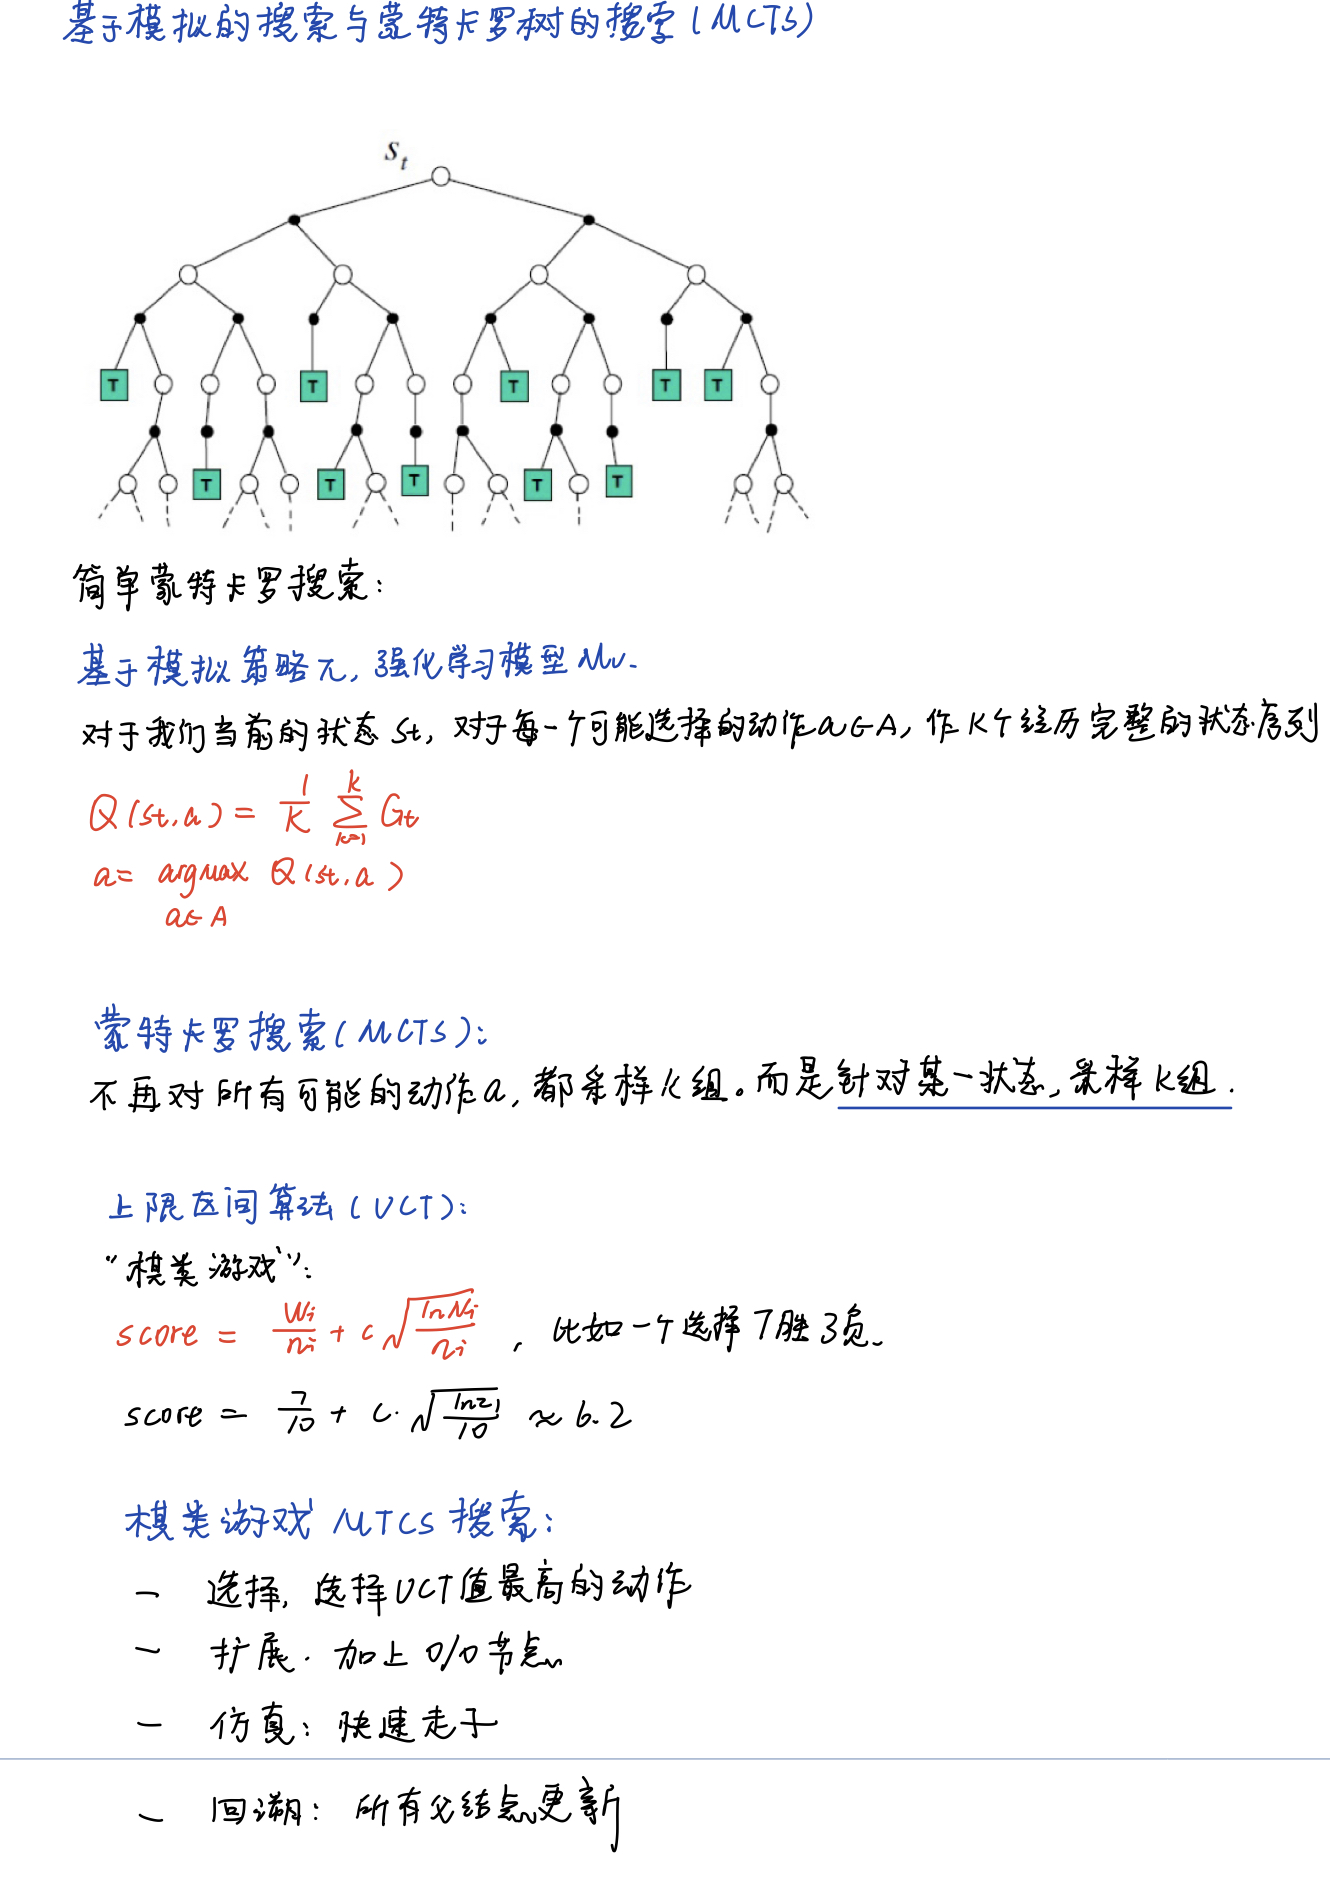 基于模拟的搜索与蒙特卡罗树的搜索(MCTS)
S_t
T T T T T
T T T T T
简单蒙特卡罗搜索:
基于模拟策略π,强化学习模型Mv.
对于我们当前的状态St,对于每一个可能选择的动作a∈A,作K个经历完整的状态序列
Q(St,a) = 1/K ∑_{k=1}^{k} Gt
a = argmax Q(st,a)
a∈A
蒙特卡罗搜索(MCTS):
不再对所有可能的动作a,都采样k组。而是针对某一状态,采样K组.
上限区间算法(UCT):
“棋类游戏”:
score = Wi/ni + c√(lnNi/ni) , 比如一个选择7胜3负.
score = 7/10 + C·√(ln21/10) ≈ 6.2
棋类游戏 MTCS搜索:
— 选择,选择UCT值最高的动作
— 扩展. 加上0/0节点
— 仿真: 快速走子
— 回溯: 所有父结点更新